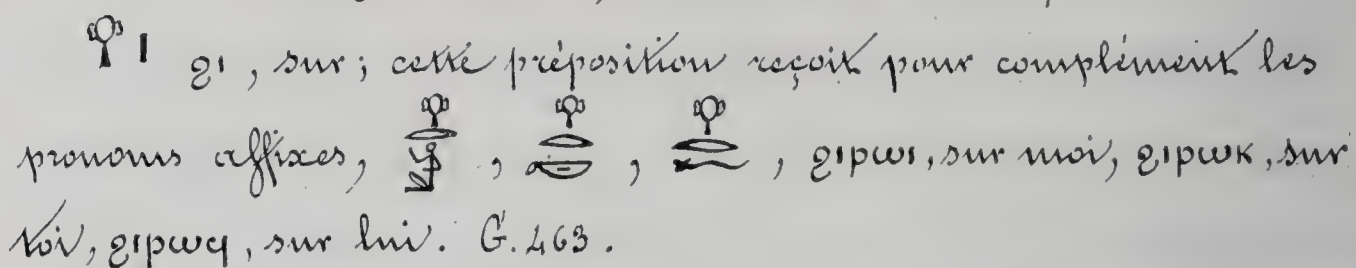 𓁷𓏤 ϩⲓ, sur; cette préposition reçoit pour complément les
pronoms affixes, 𓁷𓂋𓀀, 𓁷𓂋𓎡, 𓁷𓂋𓆑, ϩⲓⲣⲱⲓ, sur moi, ϩⲓⲣⲱⲕ, sur
toi, ϩⲓⲣⲱϥ, sur lui. G. 463.